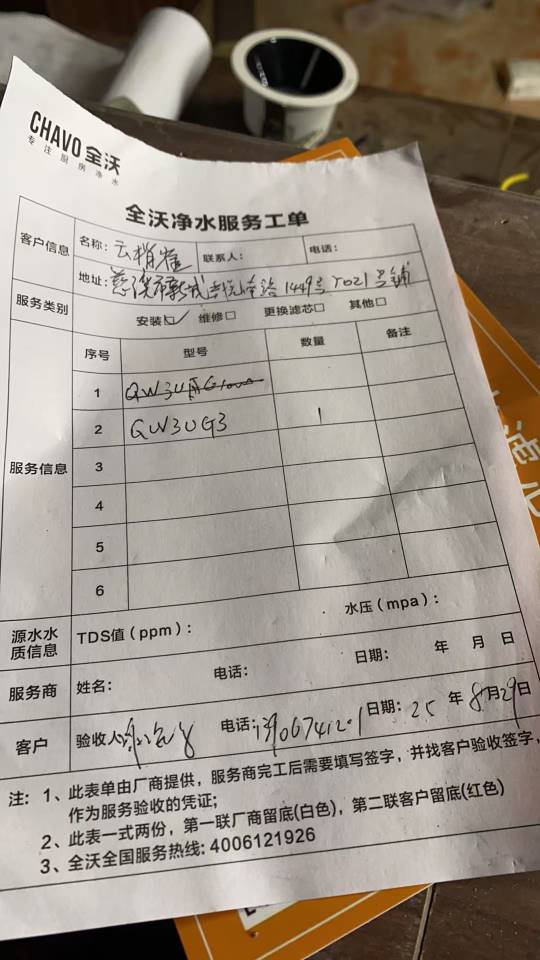 CHAVO 全沃
专注厨房净水
全沃净水服务工单
客户信息 名称: 联系人: 电话:
地址: 1449号
服务类别 安装☑ 维修□ 更换滤芯□ 其他□
服务信息 序号 型号 数量 备注
1
2 QW3UG3 1
3
4
5
6
源水水质信息 TDS值(ppm): 水压(mpa):
服务商 姓名: 电话: 日期: 年 月 日
客户 验收人 电话: 日期: 25 年 8月29日
注: 1、此表单由厂商提供，服务商完工后需要填写签字，并找客户验收签字，
作为服务验收的凭证;
2、此表一式两份，第一联厂商留底(白色)，第二联客户留底(红色)
3、全沃全国服务热线: 4006121926